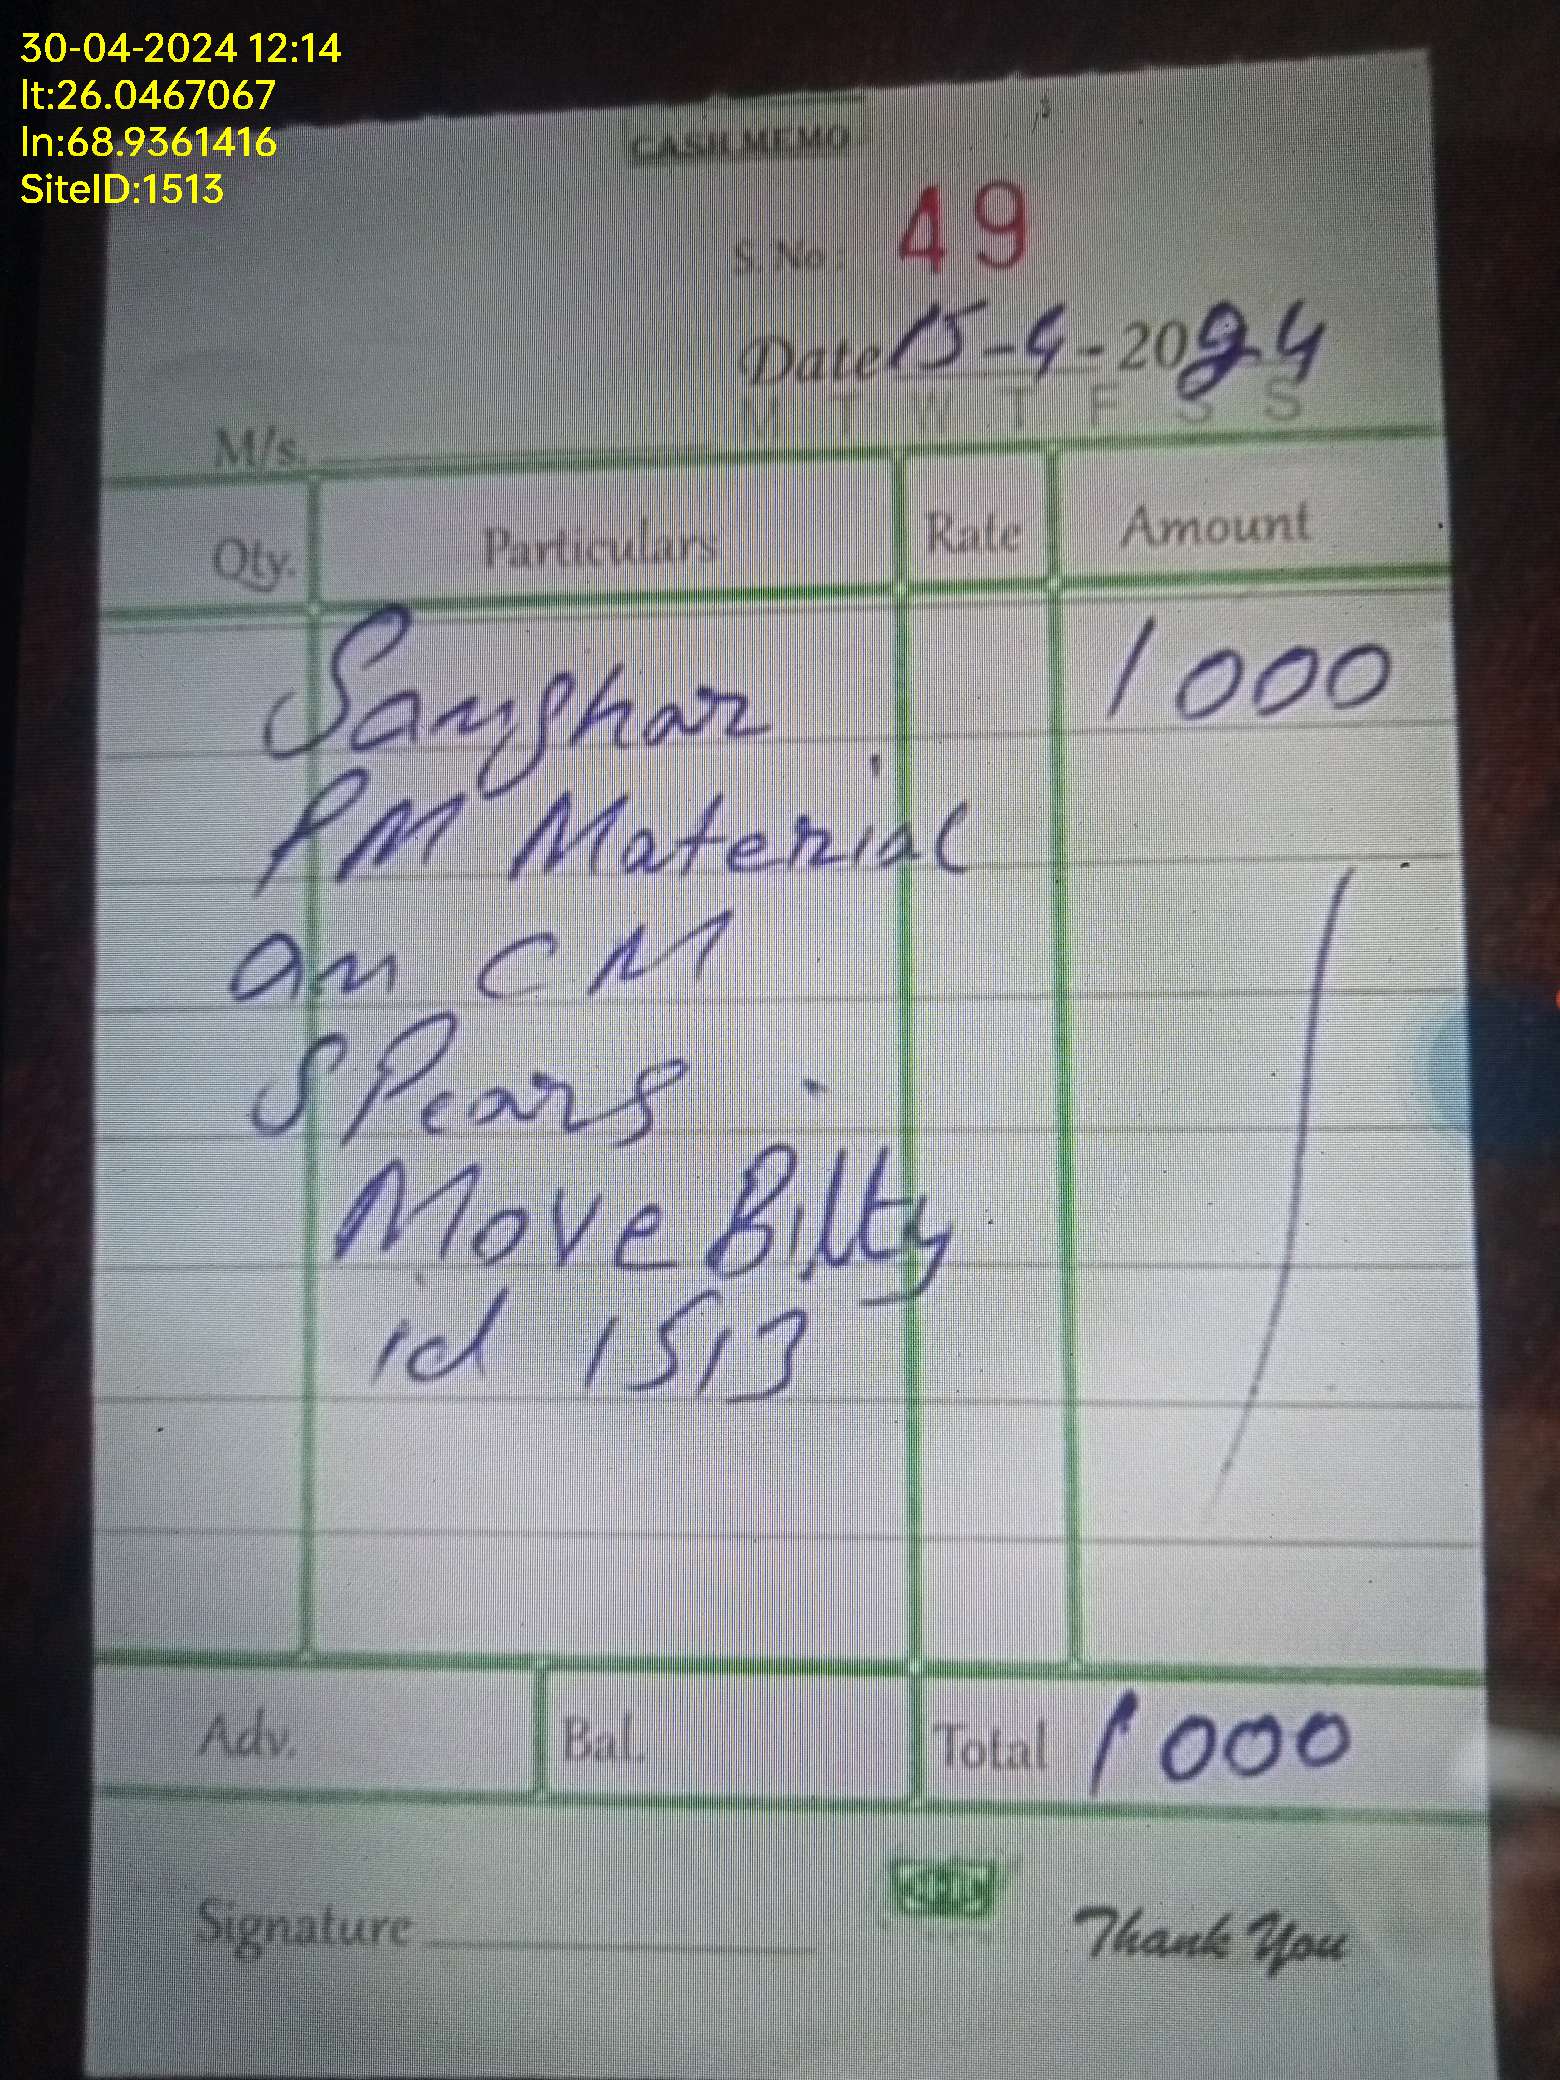 30-04-2024 12:14
lt:26.0467067
ln:68.9361416
SiteID:1513
CASH MEMO
S. No : 49
Date 15-4-2024
M T W T F S S
M/s.
Qty. Particulars Rate Amount
Sanghar 1000
PM Material
an CM
SPears
Move Bilty
id 1513
Adv. Bal. Total 1000
Signature
Thank You